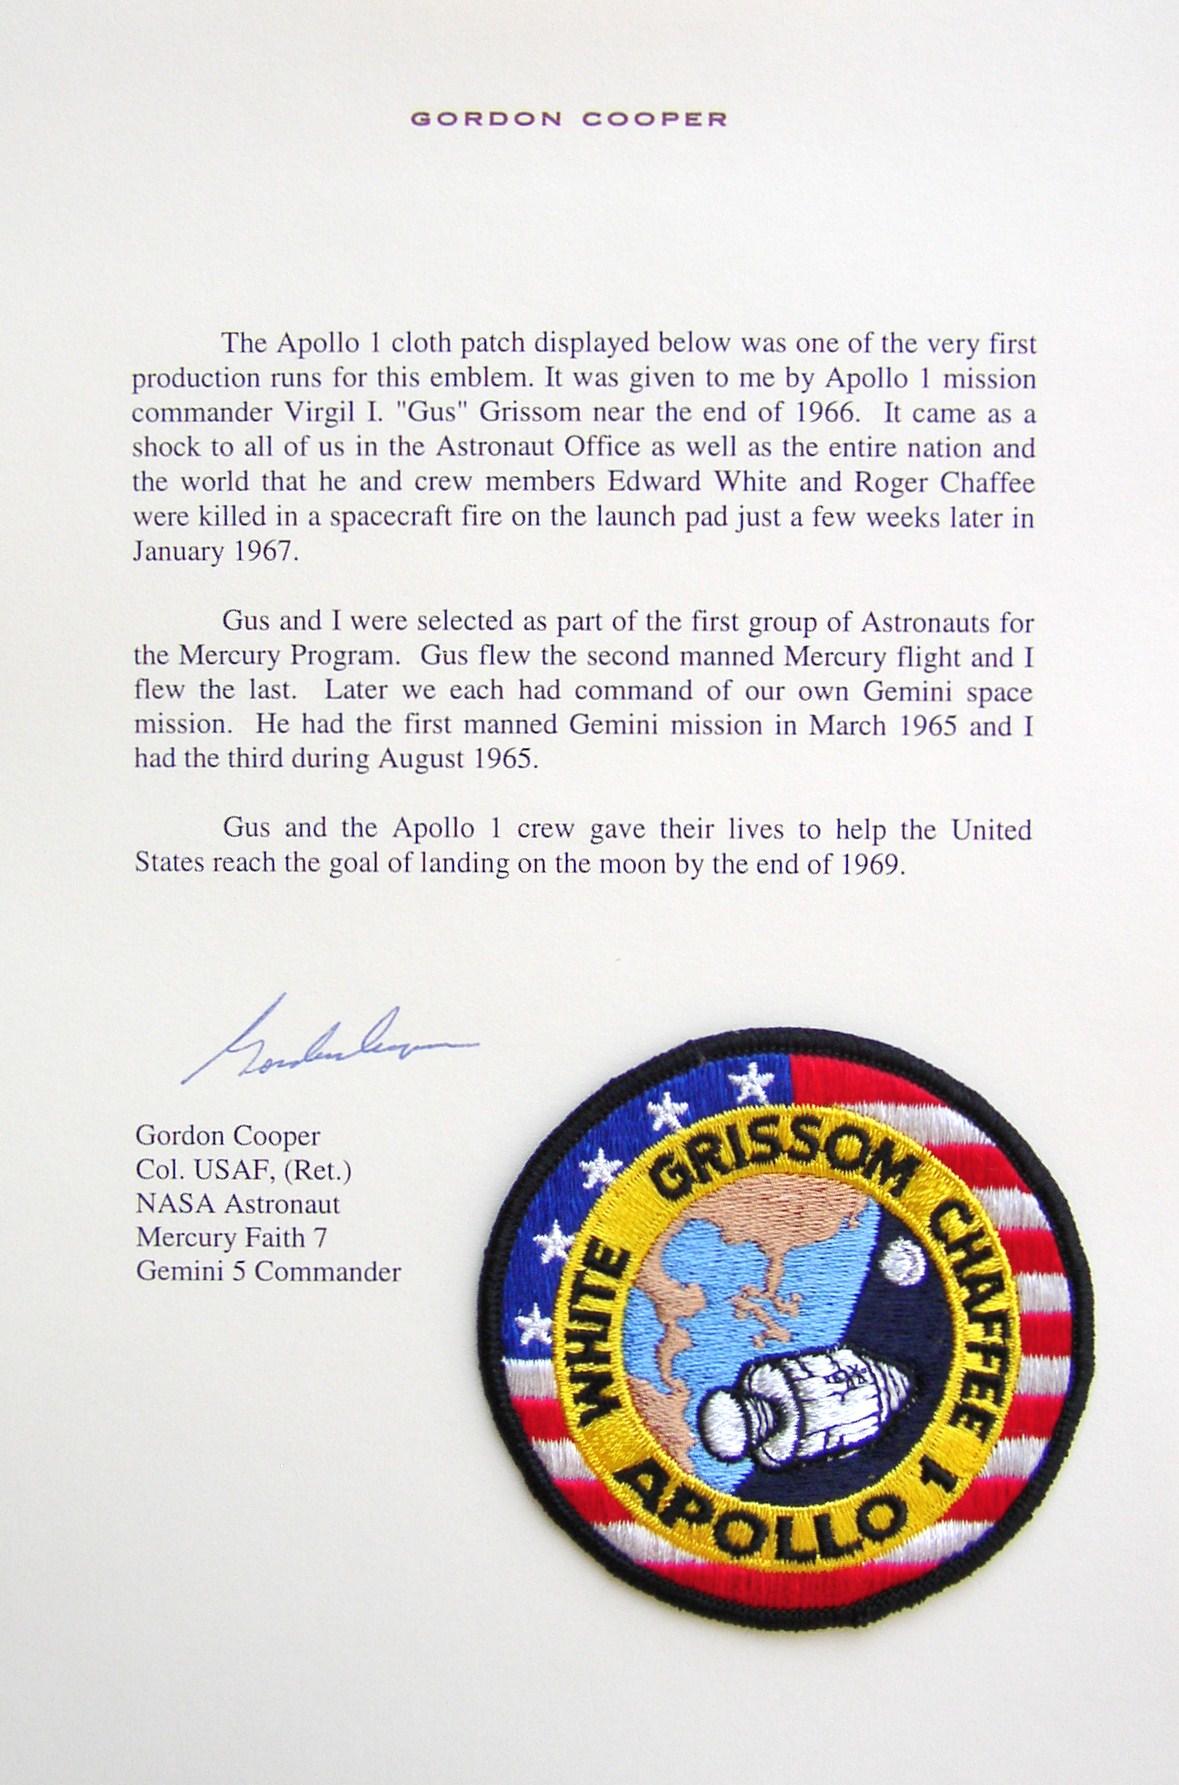 GORDON COOPER
The Apollo 1 cloth patch displayed below was one of the very first
production runs for this emblem. It was given to me by Apollo 1 mission
commander Virgil I. "Gus" Grissom near the end of 1966. It came as a
shock to all of us in the Astronaut Office as well as the entire nation and
the world that he and crew members Edward White and Roger Chaffee
were killed in a spacecraft fire on the launch pad just a few weeks later in
January 1967.
Gus and I were selected as part of the first group of Astronauts for
the Mercury Program. Gus flew the second manned Mercury flight and I
flew the last. Later we each had command of our own Gemini space
mission. He had the first manned Gemini mission in March 1965 and I
had the third during August 1965.
Gus and the Apollo 1 crew gave their lives to help the United
States reach the goal of landing on the moon by the end of 1969.
Gordon Cooper
Gordon Cooper
Col. USAF, (Ret.)
NASA Astronaut
Mercury Faith 7
Gemini 5 Commander
WHITE GRISSOM CHAFFEE
APOLLO 1